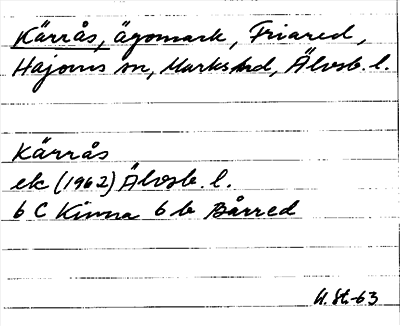 Kärrås, ägomark, Friared,
Hajoms sn, Marks hd, Älvsb. l.
Kärrås
ek (1962) Älvsb. l.
6 C Kinna 6 b Bårred
U. St.-63